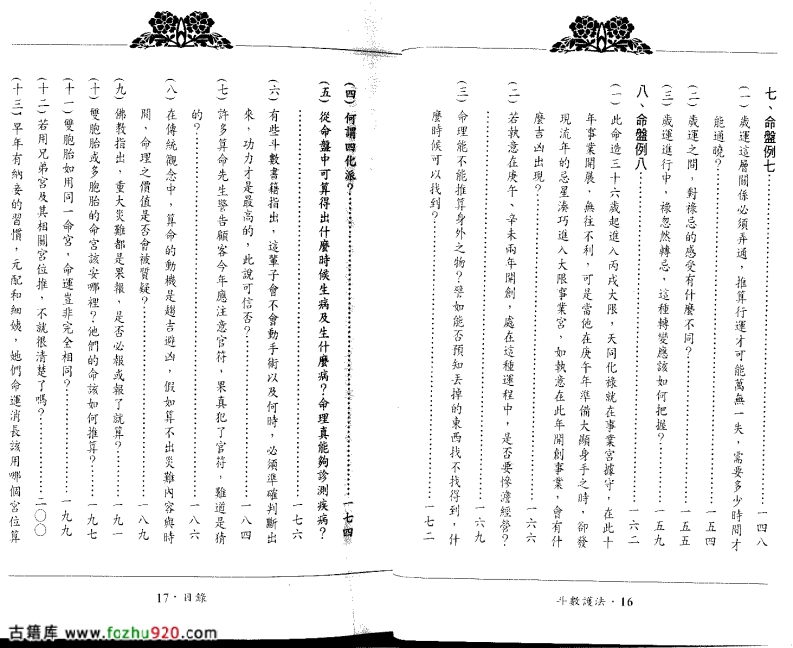 七、命盤例七⋯⋯一四八
(一)歲運這層關係必須弄通，推算行運才可能萬無一失，需要多少時間才
能通曉？⋯⋯一五四
(二)歲運之間，對祿忌的感受有什麼不同？⋯⋯一五五
(三)歲運進行中，祿忽然轉忌，這種轉變應該如何把握？⋯⋯一五九
八、命盤例八⋯⋯一六二
(一)此命造三十六歲起進入丙戌大限，天同化祿就在事業宮據守，在此十
年事業開展，無往不利，可是當他在庚午年準備大顯身手之時，卻發
現流年的忌星湊巧進入大限事業宮，如執意在此年開創事業，會有什
麼吉凶出現？⋯⋯一六六
(二)若執意在庚午、辛未兩年開創，處在這種運程中，是否要慘澹經營？
⋯⋯一六九
(三)命理能不能推算身外之物？譬如能否預知丟掉的東西找不找得到，什
麼時候可以找到？⋯⋯一七二
斗數護法·16
(四)何謂四化派？⋯⋯一七四
(五)從命盤中可算得出什麼時候生病及生什麼病？命理真能夠診測疾病？
⋯⋯一七六
(六)有些斗數書籍指出，這輩子會不會動手術以及何時，必須準確判斷出
來，功力才是最高的，此說可信否？⋯⋯一八四
(七)許多算命先生警告顧客今年應注意官符，果真犯了官符，難道是猜
的？⋯⋯一八六
(八)在傳統觀念中，算命的動機是趨吉避凶，假如算不出災難內容與時
間，命理之價值是否會被質疑？⋯⋯一八九
(九)佛教指出，重大災難都是果報，是否必報或報了就算？⋯⋯一九一
(十)雙胞胎或多胞胎的命宮該安哪裡？他們的命該如何推算？⋯⋯一九七
(十一)雙胞胎如用同一命宮，命運豈非完全相同？⋯⋯一九九
(十二)若用兄弟宮及其相關宮位推，不就很清楚了嗎？⋯⋯二〇〇
(十三)早年有納妾的習慣，元配和細姨，她們命運消長該用哪個宮位算
17·目錄
古籍库 www.fozhu920.com